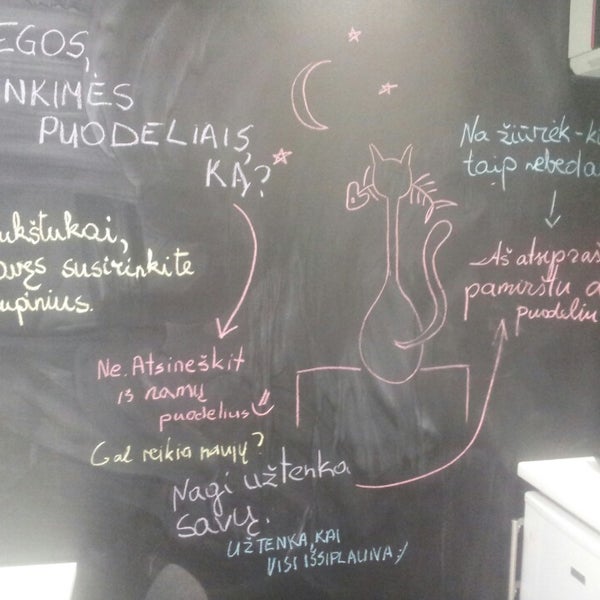 EGOS,
NKIMĖS
PUODELIAIS,
KĄ?
Na žiūrėk-ki
taip nebeda
ukštukai,
avęs susirinkite
upinius.
Aš atsipraš
pamirštu a
puodeliu
Ne. Atsineškit
iš namų
puodelius
Gal reikia naujų?
Nagi užtenka
savų.
UŽTENKA, KAI
VISI IŠSIPLAUNA :)